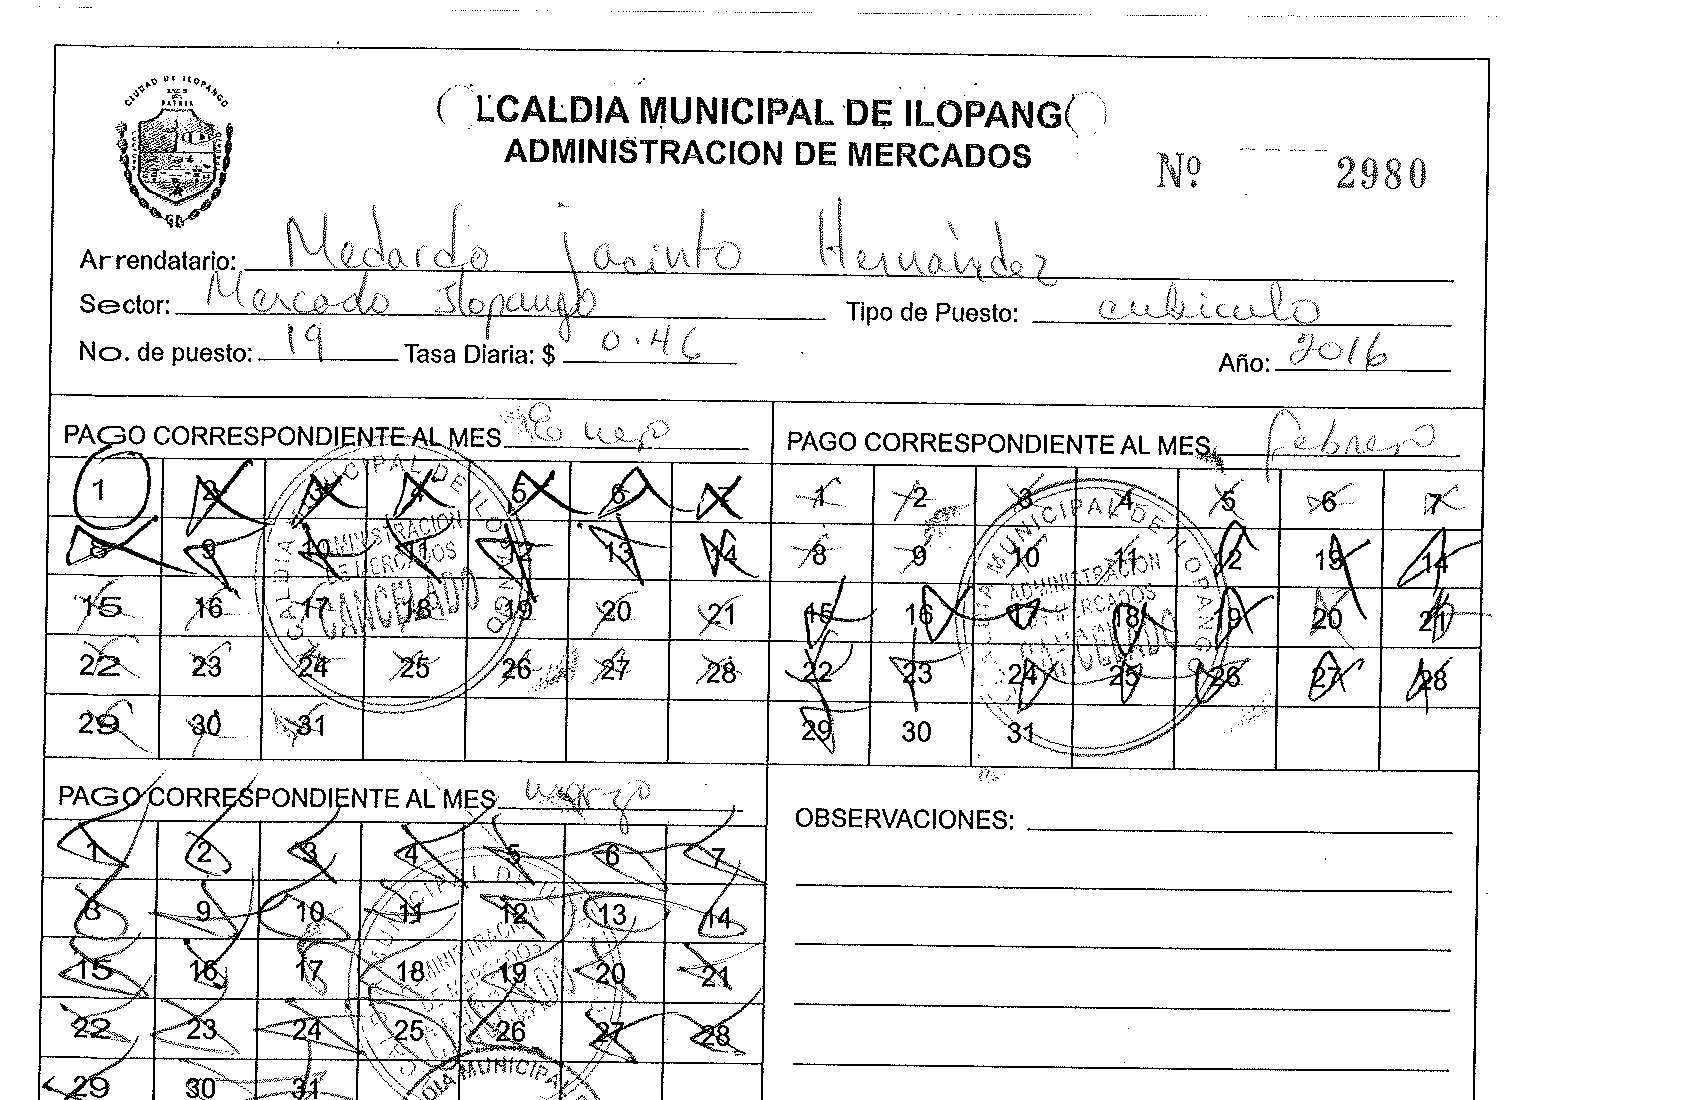 CIUDAD DE ILOPANGO
PATRIA
LCALDIA MUNICIPAL DE ILOPANG
ADMINISTRACION DE MERCADOS
Nº 2980
Arrendatario: Medardo Jacinto Hernández
Sector: Mercado Ilopango Tipo de Puesto: cubiculo
No. de puesto: 19 Tasa Diaria: $ 0.46 Año: 2016
PAGO CORRESPONDIENTE AL MES Enero
1 2 3 4 5 6 7
8 9 10 11 12 13 14
15 16 17 18 19 20 21
22 23 24 25 26 27 28
29 30 31
ALCALDIA MUNICIPAL DE ILOPANGO
ADMINISTRACION
DE MERCADOS
CANCELADO
PAGO CORRESPONDIENTE AL MES febrero
1 2 3 4 5 6 7
8 9 10 11 12 13 14
15 16 17 18 19 20 21
22 23 24 25 26 27 28
29 30 31
MUNICIPAL DE ILOPANGO
ADMINISTRACION
DE MERCADOS
CANCELADO
PAGO CORRESPONDIENTE AL MES marzo
1 2 3 4 5 6 7
8 9 10 11 12 13 14
15 16 17 18 19 20 21
22 23 24 25 26 27 28
29 30 31
MUNICIPAL DE
DIA MUNICIPAL
OBSERVACIONES: